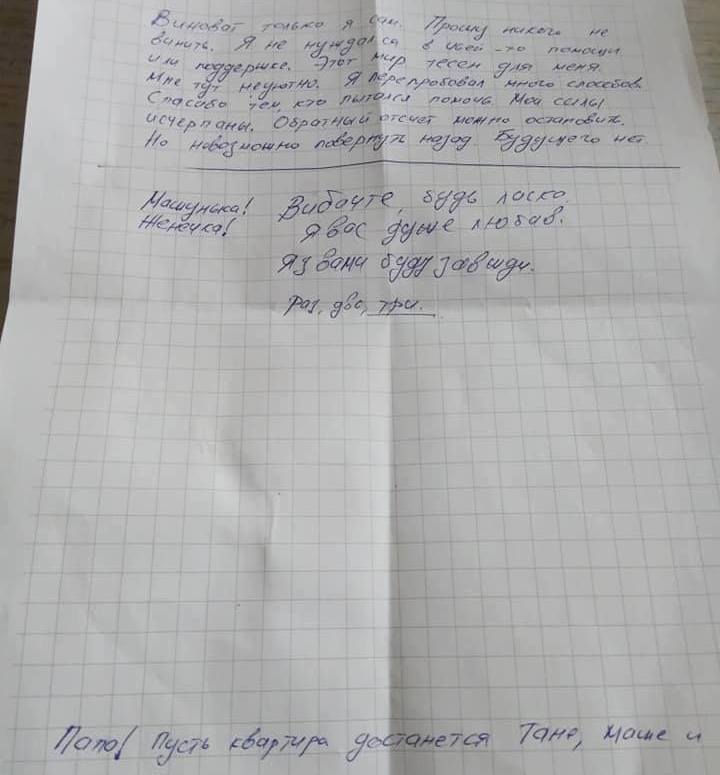 Виноват только я сам. Прошу никого не
винить. Я не нуждался в чьей-то помощи
или поддержке. Этот мир тесен для меня.
Мне тут неуютно. Я перепробовал много способов.
Спасибо тем, кто пытался помочь. Мои силы
исчерпаны. Обратный отсчет можно остановить.
Но невозможно повернуть назад Будущего нет.
Машунька! Вибачте, будь ласка.
Женечка! Я вас дуже любав.
Я з вами буду завжди.
Раз, два, три.
Папа! Пусть квартира достанется Тане, Маше и